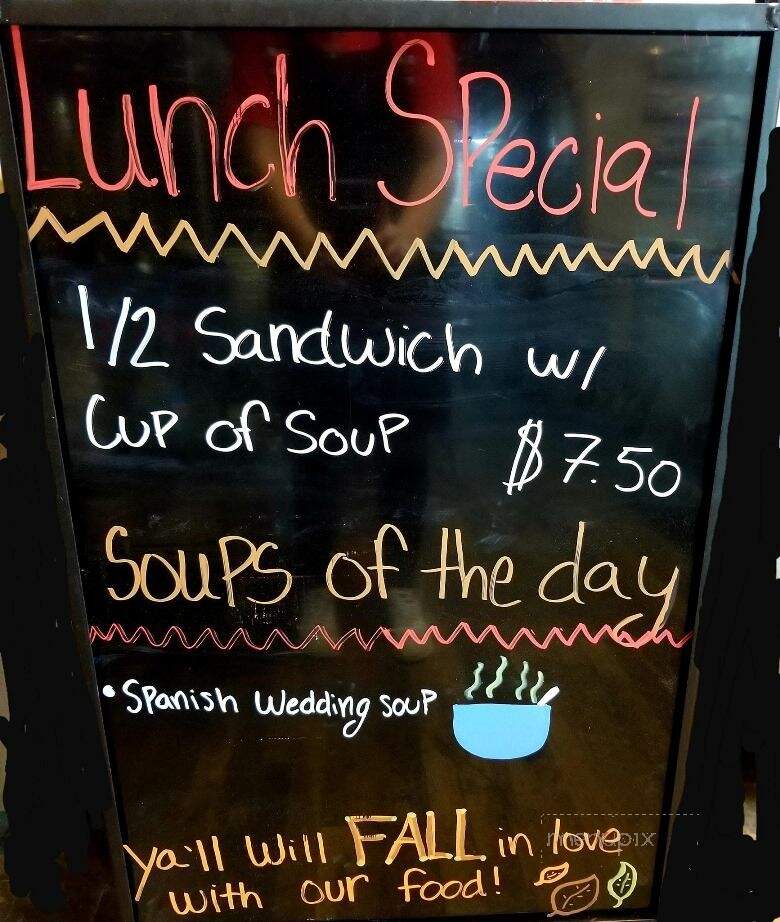 Lunch Special
1/2 Sandwich w/
Cup of Soup $7.50
Soups of the day
• Spanish Wedding soup
ya'll will FALL in love
with our food!
menupix